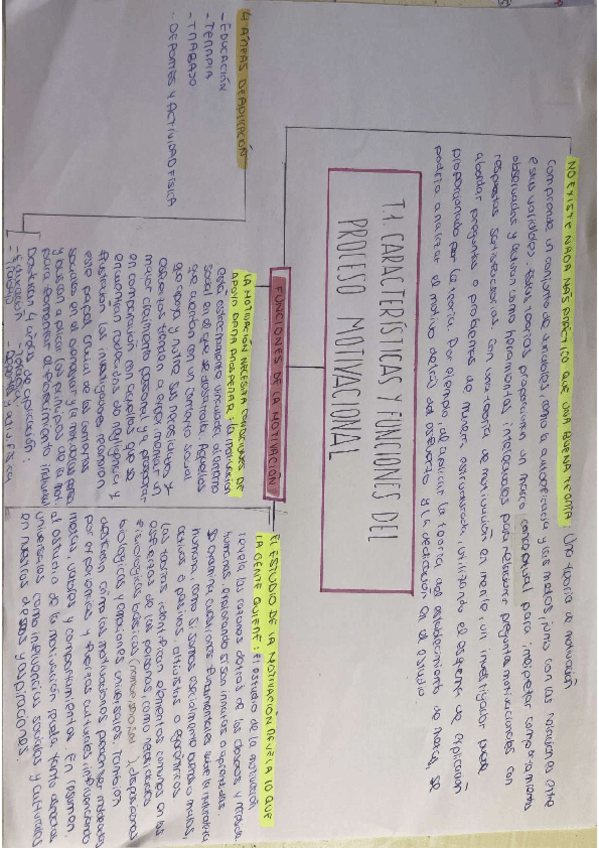 T.1. CARACTERÍSTICAS Y FUNCIONES DEL
PROCESO MOTIVACIONAL
FUNCIONES DE LA MOTIVACIÓN
NO EXISTE NADA MÁS PRÁCTICO QUE UNA BUENA TEORÍA: Una teoría de motivación
comprende un conjunto de variables, como la autoeficacia y las metas, junto con las relaciones entre
estas variables. Estas teorías proporcionan un marco conceptual para interpretar comportamientos
observados y actúan como herramientas intelectuales para responder preguntas motivacionales con
respuestas satisfactorias. Con una teoría de motivación en mente, un investigador puede
abordar preguntas o problemas de manera estructurada, utilizando el esquema de explicación
proporcionado por la teoría. Por ejemplo, al aplicar la teoría del establecimiento de metas, se
podría analizar el motivo detrás del esfuerzo y la dedicación en el estudio
4 ÁREAS DE APLICACIÓN
- EDUCACIÓN
- TERAPIA
- TRABAJO
- DEPORTES Y ACTIVIDAD FÍSICA
LA MOTIVACIÓN NECESITA CONDICIONES DE
APOYO PARA PROSPERAR: la motivación
está estrechamente vinculada al entorno
social en el que se desarrolla. Aquellos
que cuentan con un contexto social
que apoya y nutre sus necesidades y
esfuerzos tienden a experimentar un
mayor crecimiento personal y a prosperar
en comparación con aquellos que se
encuentran rodeados de negligencia y
frustración. Los investigadores reconocen
este papel crucial de los contextos
sociales en el
y buscan aplicar los principios de la mot.
para fomentar el florecimiento individual
Destacan 4 áreas de aplicación:
- Educación - Terapia
- Trabajo - Deportes y act. física
EL ESTUDIO DE LA MOTIVACIÓN REVELA LO QUE
LA GENTE QUIERE: El estudio de la motivación
revela las razones detrás de los deseos y
humanos, explorando si son innatos o aprendidos.
Se examinan cuestiones fundamentales sobre la naturaleza
humana, como si somos esencialmente buenos o malos,
activos o pasivos, altruistas o egoístas
Las teorías identifican elementos comunes en los
de las personas, como necesidades
fisiológicas básicas, disposiciones
biológicas y emociones universales. También
destacan cómo las motivaciones pueden ser
por experiencias y fuerzas culturales, influenciando
metas, valores y comportamientos. En resumen,
el estudio de la motivación revela tanto aspectos
universales como influencias sociales y culturales
en nuestros deseos y aspiraciones.